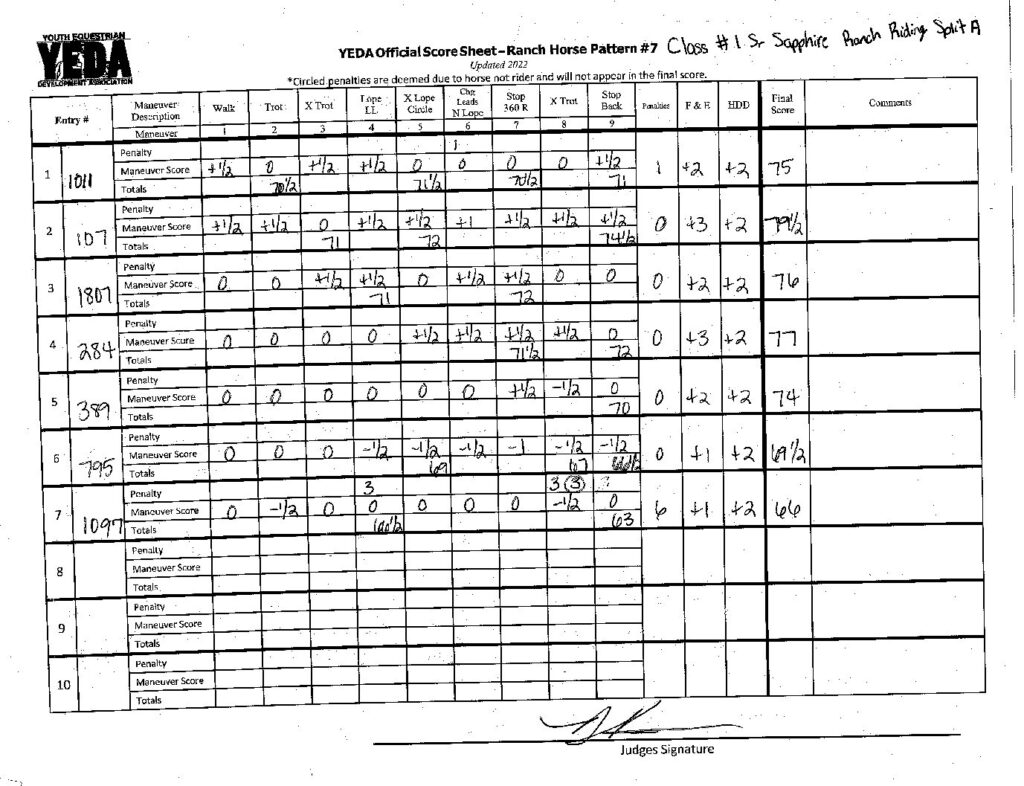 YOUTH EQUESTRIAN
YEDA
DEVELOPMENT ASSOCIATION
YEDA Official Score Sheet – Ranch Horse Pattern #7 Class #1 Sr Sapphire Ranch Riding Split A
Updated 2022
*Circled penalties are deemed due to horse not rider and will not appear in the final score.
Entry # Maneuver Description Walk Trot X Trot Lope LL X Lope Circle Chg Leads N Lope Stop 360 R X Trot Stop Back Penalties F & E HDD Final Score Comments
Maneuver 1 2 3 4 5 6 7 8 9
Penalty 1
1 1011 Maneuver Score +1/2 0 +1/2 +1/2 0 0 0 0 +1/2 1 +2 +2 75
Totals 70 1/2 71 1/2 70 1/2 71
Penalty
2 107 Maneuver Score +1/2 +1/2 0 +1/2 +1/2 +1 +1/2 +1/2 +1/2 0 +3 +2 79 1/2
Totals 71 72 74 1/2
Penalty
3 1807 Maneuver Score 0 0 +1/2 +1/2 0 +1/2 +1/2 0 0 0 +2 +2 76
Totals 71 72
Penalty
4 284 Maneuver Score 0 0 0 0 +1/2 +1/2 +1/2 +1/2 0 0 +3 +2 77
Totals 71 1/2 72
Penalty
5 389 Maneuver Score 0 0 0 0 0 0 +1/2 -1/2 0 0 +2 +2 74
Totals 70
Penalty
6 795 Maneuver Score 0 0 0 -1/2 -1/2 -1/2 -1 -1/2 -1/2 0 +1 +2 69 1/2
Totals 69 67 66 1/2
Penalty 3 3 (3)
7 1097 Maneuver Score 0 -1/2 0 0 0 0 0 -1/2 0 6 +1 +2 66
Totals 66 1/2 63
Penalty
8 Maneuver Score
Totals
Penalty
9 Maneuver Score
Totals
Penalty
10 Maneuver Score
Totals
Judges Signature